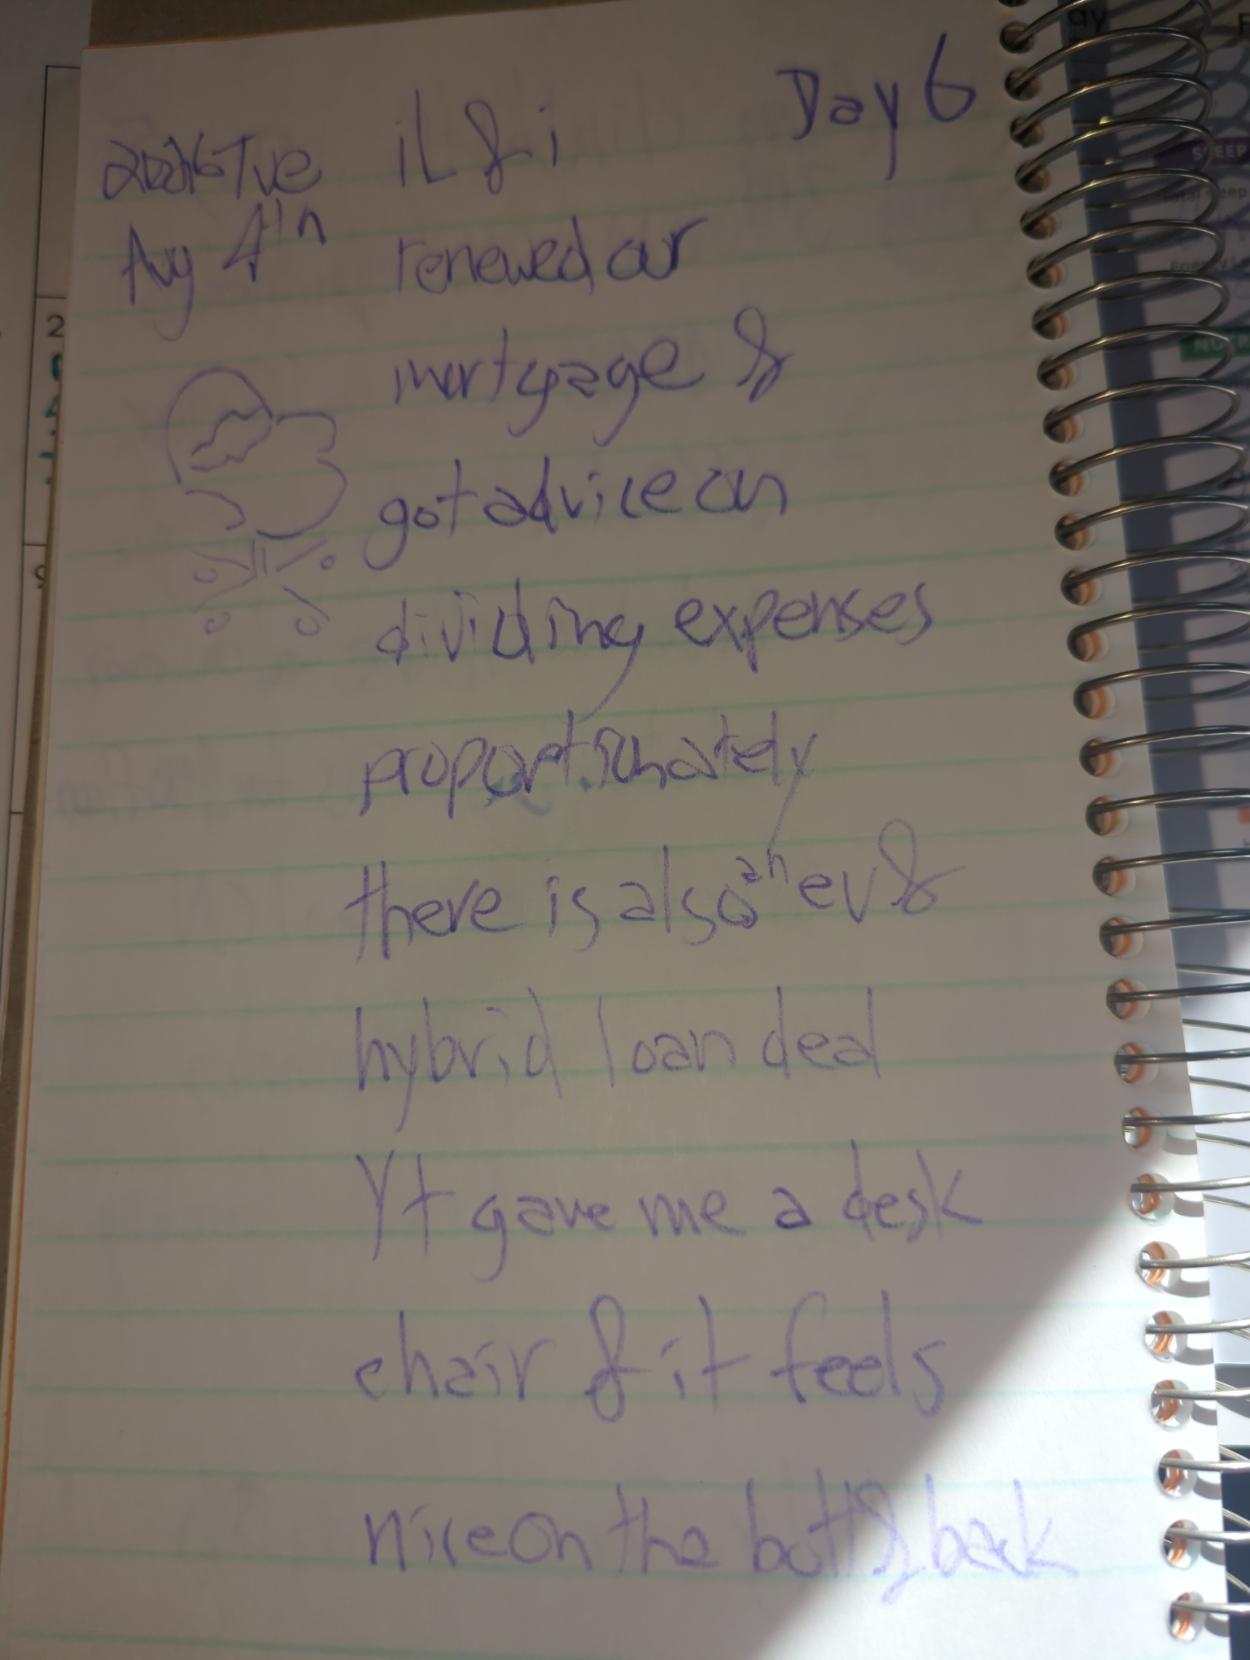 Day 6
2026 Tue iL & i
Aug 4th renewed our
mortgage &
got advice on
dividing expenses
proportionately
there is also an ev &
hybrid loan deal
Yt gave me a desk
chair & it feels
nice on the butt & back
ay
SLEEP
2
9